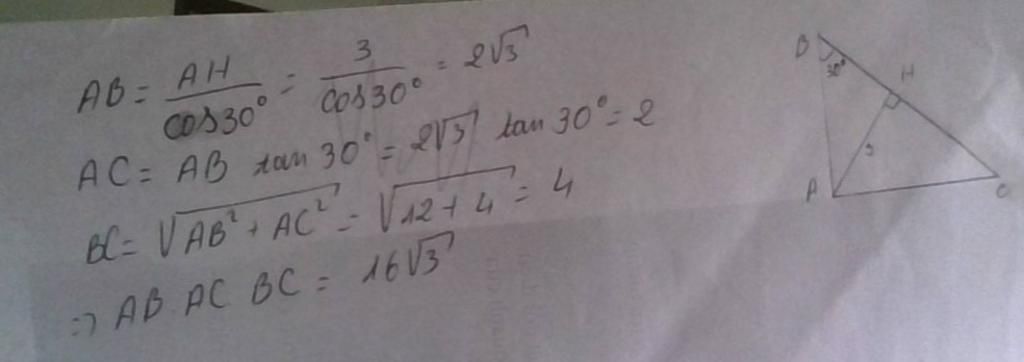 AB = AH / cos30° = 3 / cos30° = 2√3
AC = AB tan 30° = 2√3 tan 30° = 2
BC = √AB² + AC² = √12 + 4 = 4
=> AB. AC BC = 16√3
B
30°
H
3
A
C